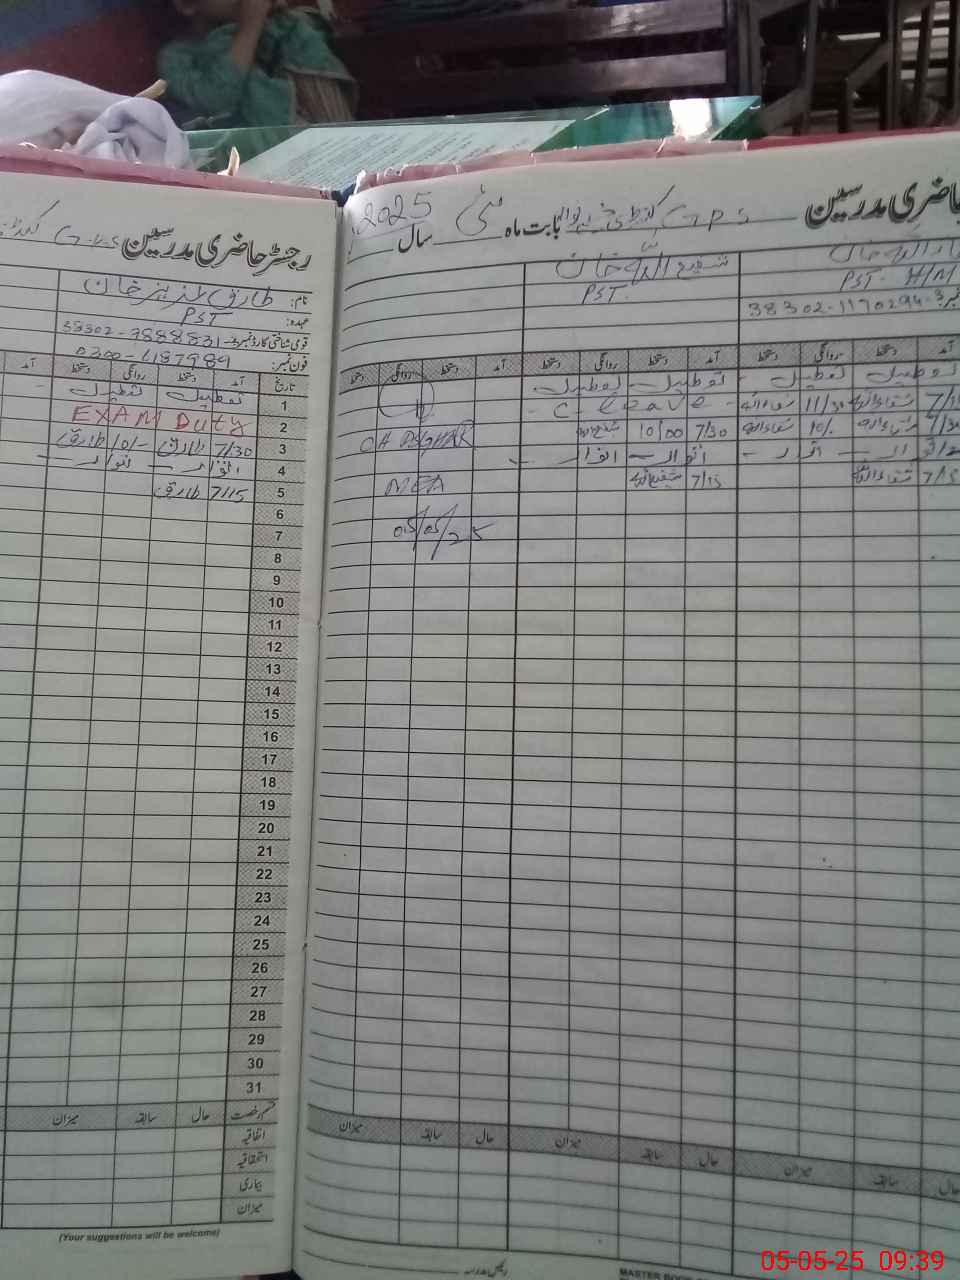 رجسٹر حاضری مدرسین
G.P.S
نام: طارق عزیز خان
عہدہ: PST
قومی شناختی کارڈ نمبر: 38302-9888831-3
فون نمبر: 0300-6187989
تاریخ آمد دستخط روانگی دستخط آمد
1 تعطیل تعطیل
2 EXAM Duty
3 7/30 طارق 10/- طارق
4 اتوار اتوار
5 7/15 طارق
6
7
8
9
10
11
12
13
14
15
16
17
18
19
20
21
22
23
24
25
26
27
28
29
30
31
قسم رخصت حال سابقہ میزان
اتفاقیہ
استحقاقیہ
بیماری
میزان
(Your suggestions will be welcome)
حاضری مدرسین G P S بابت ماہ مئی سال 2025
اللہ خان شفیع اللہ خان
PST H/M PST
38302-1170294-3
آمد دستخط روانگی دستخط آمد دستخط روانگی دستخط آمد دستخط روانگی دستخط
تعطیل تعطیل تعطیل تعطیل
شفاءاللہ 11/30 شفاءاللہ - C- Leave -
7/30 شفاءاللہ 10/- شفاءاللہ 7/30 10/00
اتوار اتوار اتوار
7/15 شفاءاللہ 7/15 شفیع اللہ
MEA
05/05/25
حال سابقہ میزان حال سابقہ میزان حال سابقہ میزان
رئیس مدرسہ
MASTER BOOK
05-05-25 09:39